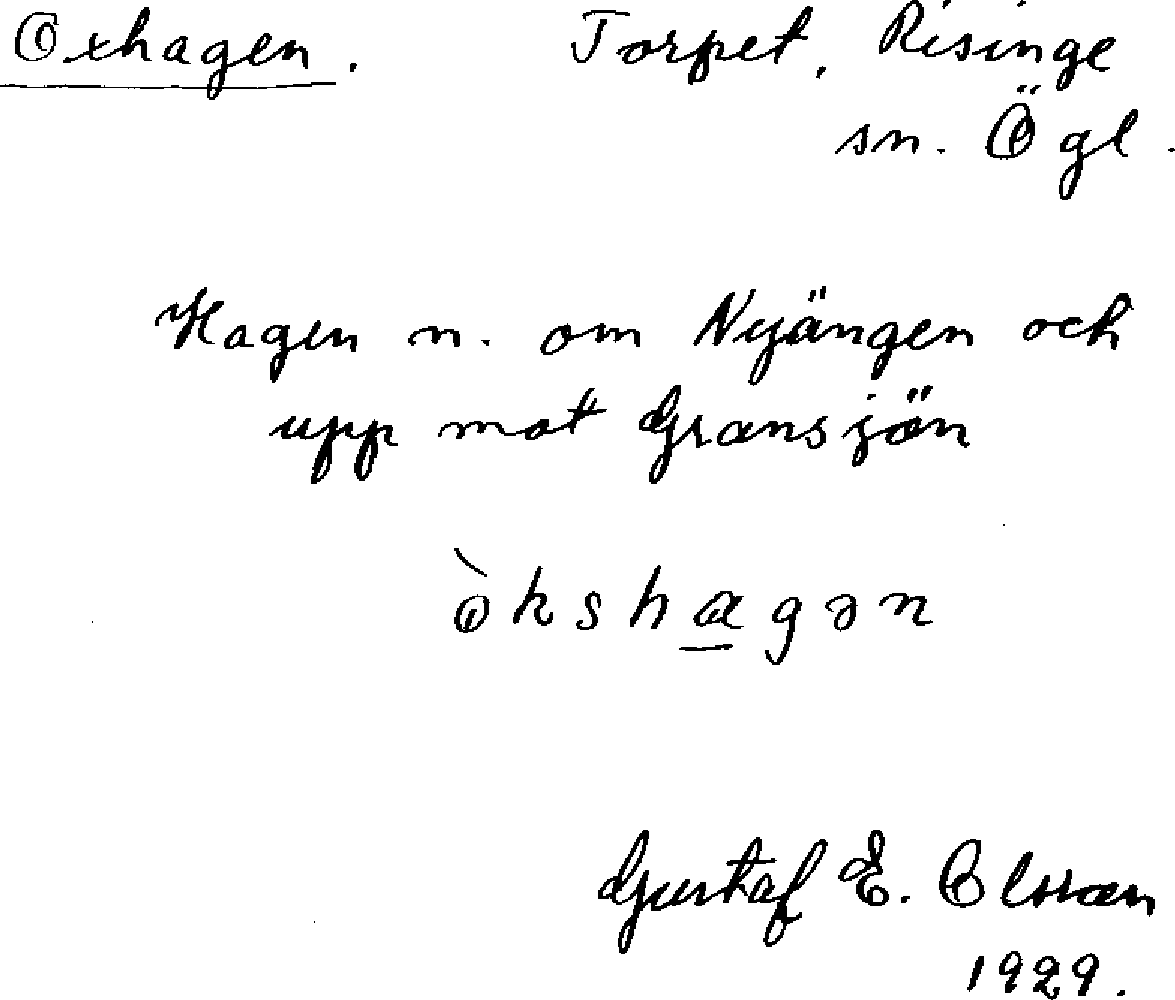 Oxhagen. Torpet, Risinge
sn. Ögl.
Hagen n. om Nyängen och
upp mot Gransjön
òkshagən
Gustaf E. Olsson
1929.